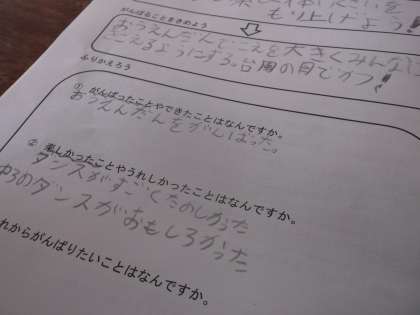 もり上げよう!
がんばることをきめよう
おうえんだんでこえを大きくみんなに
きこえるようにする。台風の目でかつ!
ふりかえろう
① がんばったことやできたことはなんですか。
おうえんだんをがんばった。
② 楽しかったことやうれしかったことはなんですか。
ダンスがすごくたのしかった
中3のダンスがおもしろかった
れからがんばりたいことはなんですか。